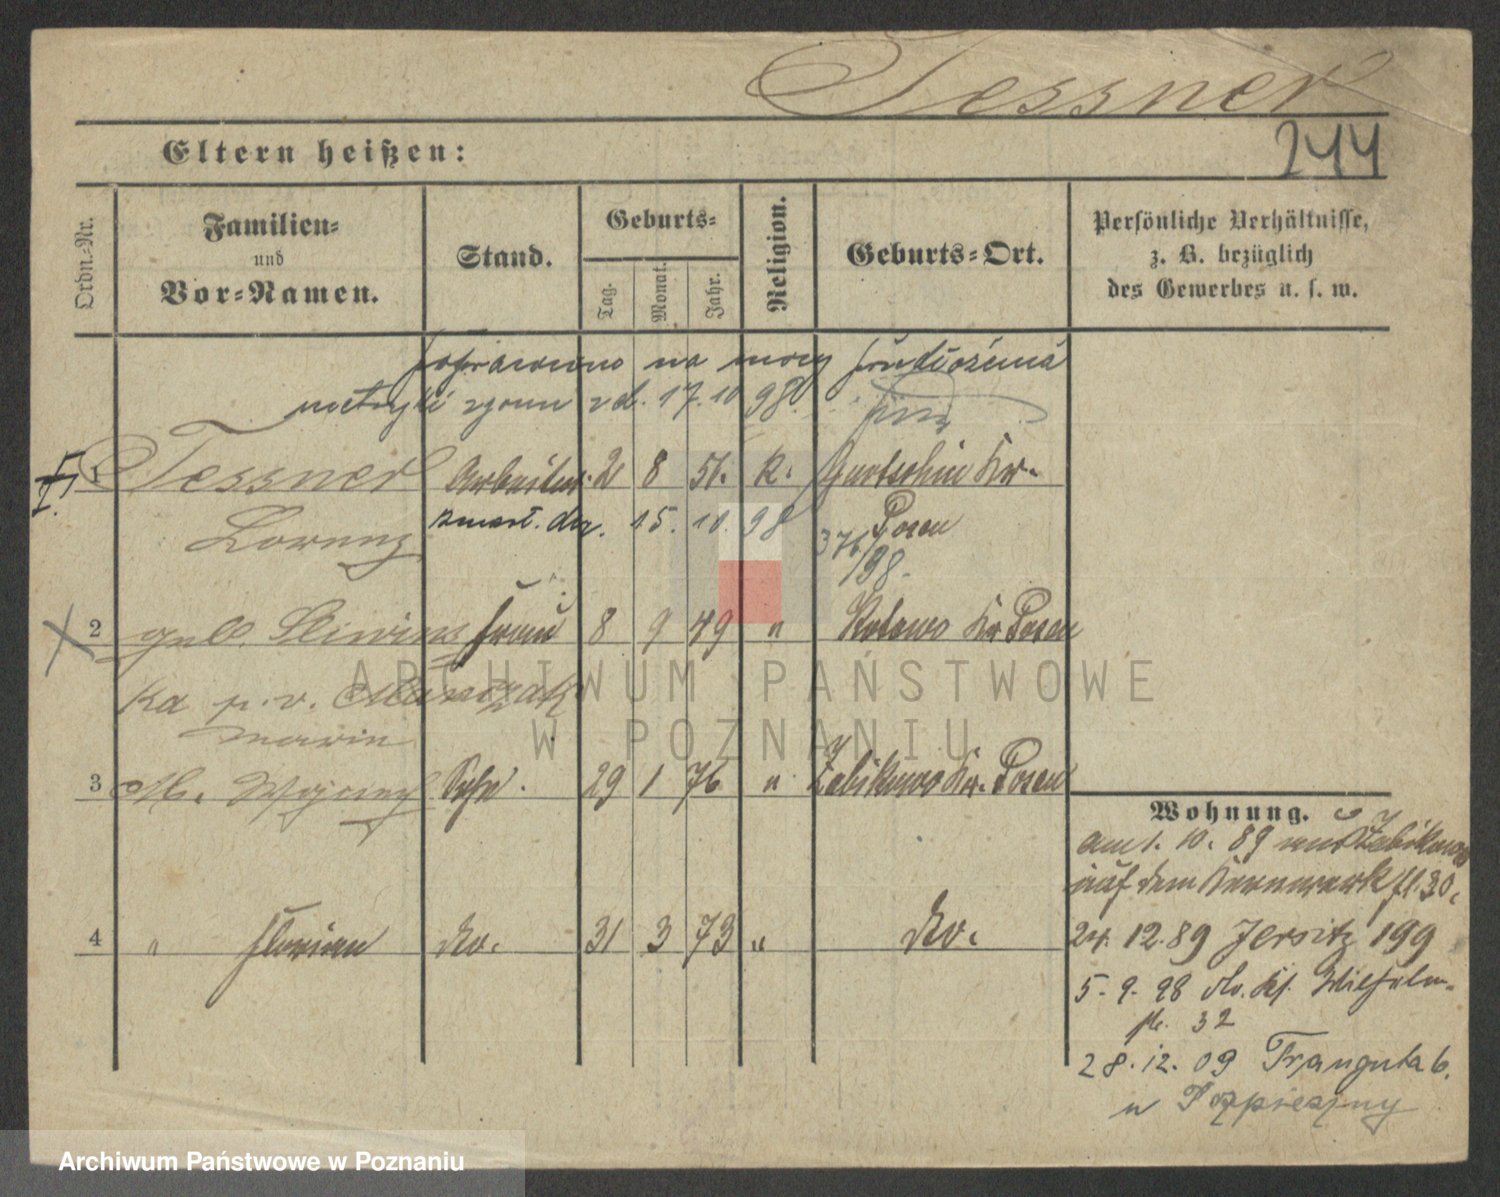 Tessner
244
Eltern heißen:
Ordn.-Nr.
Familien-
und
Vor-Namen.
Stand.
Geburts-
Tag.
Monat.
Jahr.
Religion.
Geburts-Ort.
Persönliche Verhältnisse,
z. B. bezüglich
des Gewerbes u. s. w.
poprawiono na mocy
metryki zgonu z d. 17.10 98.
1 Tessner Arbeiter 2 8 51. k. Kr.
Lorenz zmarł. dn. 15. 10. 98 Posen
376/98.
2 geb. Sliwins Frau 8 9 49 " Kotowo Kr Posen
ka p. v. Marczak
3 29 1 76 " Zabikowo Kr. Posen
4 " Florian do. 31 3 73 " do.
Wohnung.
am 1. 10. 89 aus Zabikowo
auf dem Kernwerk fl. 30.
24. 12. 89 Jersitz 199
5. 9. 98
32
28. 12. 09 6.
ARCHIWUM PAŃSTWOWE
W POZNANIU
Archiwum Państwowe w Poznaniu